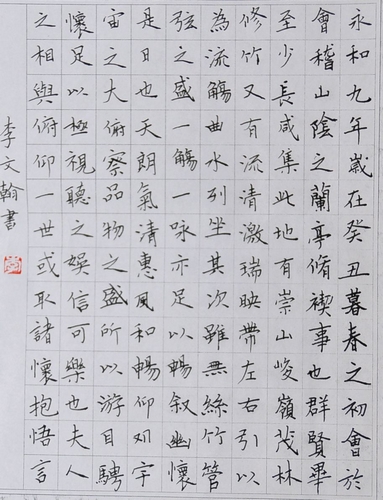 永和九年歲在癸丑暮春之初會於
會稽山陰之蘭亭脩禊事也群賢畢
至少長咸集此地有崇山峻嶺茂林
修竹又有流清激瑞映帶左右引以
為流觴曲水列坐其次雖無絲竹管
弦之盛一觴一咏亦足以暢叙幽懷
是日也天朗氣清惠風和暢仰观宇
宙之大俯察品物之盛所以游目騁
懷足以極視聽之娛信可樂也夫人
之相與俯仰一世或取諸懷抱悟言
李文翰書